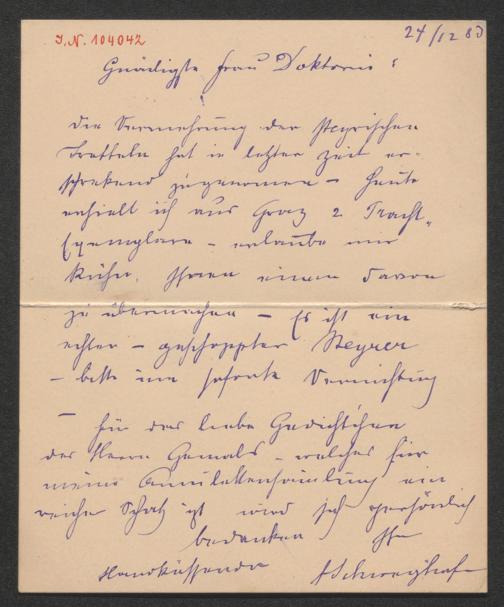 I. N. 104042
24/12 83
Gnädigste Frau Doktorin!
die Vermehrung der steyrischen
Trotteln hat in letzter Zeit er-
schrekend zugenomen – Heute
erhielt ich aus Graz 2 Pracht-
Exemplare – erlaube mir
kühn, Ihnen einen davon
zu übermachen – Es ist ein
echter – geschoppter Steyrer
– bitte um sofortige Vernichtung
–
Für das liebe Gedichtchen
des Herrn Gemals – welches für
meine sammlung ein
reicher Schatz ist wird sich persönlich
bedanken Ihr
Handküssender